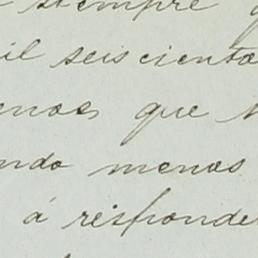 siempre
il seiscienta
enos que
ndo menos
á responde